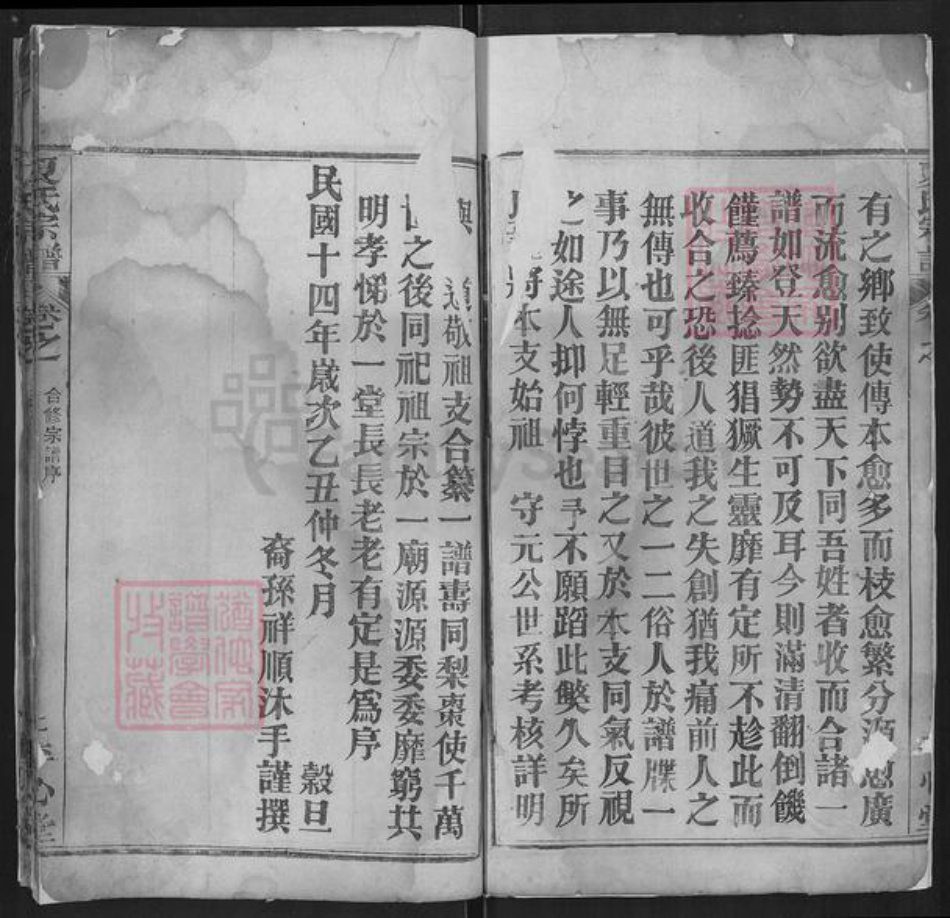 有之鄉致使傳本愈多而枝愈繁分源愈廣
而流愈别欲盡天下同吾姓者收而合諸一
譜如登天然勢不可及耳今則滿清翻倒饑
饉薦臻捻匪猖獗生靈靡有定所不趁此而
收合之恐後人道我之失創猶我痛前人之
無傳也可乎哉彼世之一二俗人於譜牒一
事乃以無足輕重目之又於本支同氣反視
之如途人抑何悖也予不願蹈此獘久矣所
將本支始祖 守元公世系考核詳明
與 遠敬祖支合纂一譜壽同梨棗使千萬
世之後同祀祖宗於一廟源源委委靡窮共
明孝悌於一堂長長老老有定是爲序
民國十四年歲次乙丑仲冬月 穀旦
裔孫祥順沐手謹撰
夏氏宗譜 卷之一 合修宗譜序
心堂
譜學會
收藏
FamilySearch